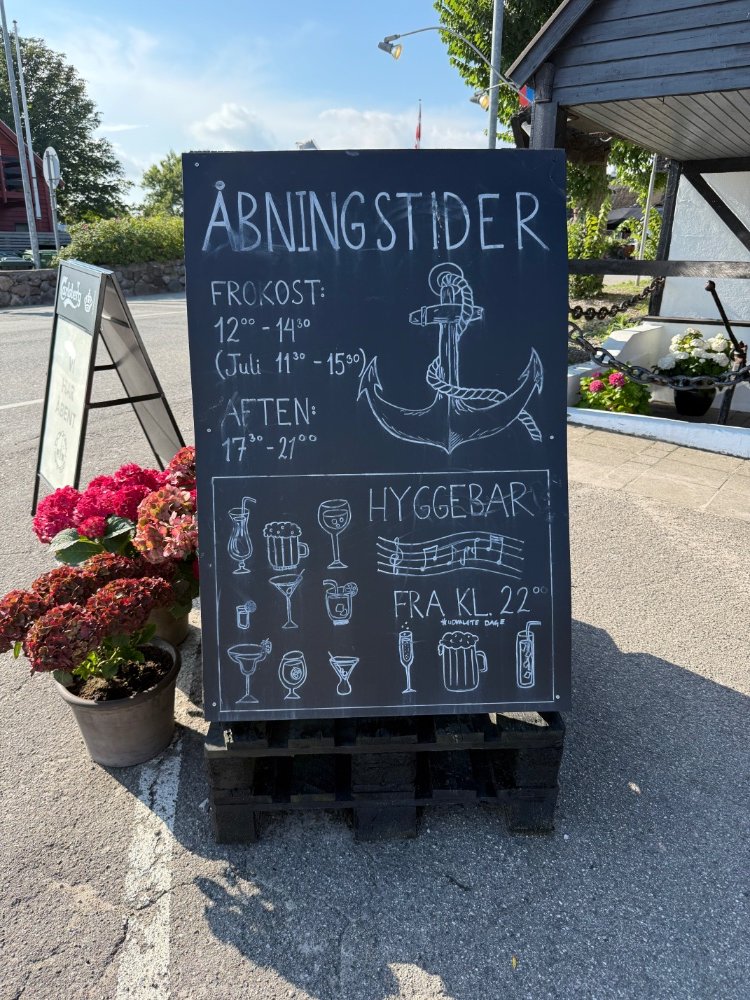 ÅBNINGSTIDER
FROKOST:
12⁰⁰ - 14³⁰
(Juli 11³⁰ - 15³⁰)
AFTEN:
17³⁰ - 21⁰⁰
HYGGEBAR
FRA KL. 22⁰⁰
*UDVALGTE DAGE
Carlsberg